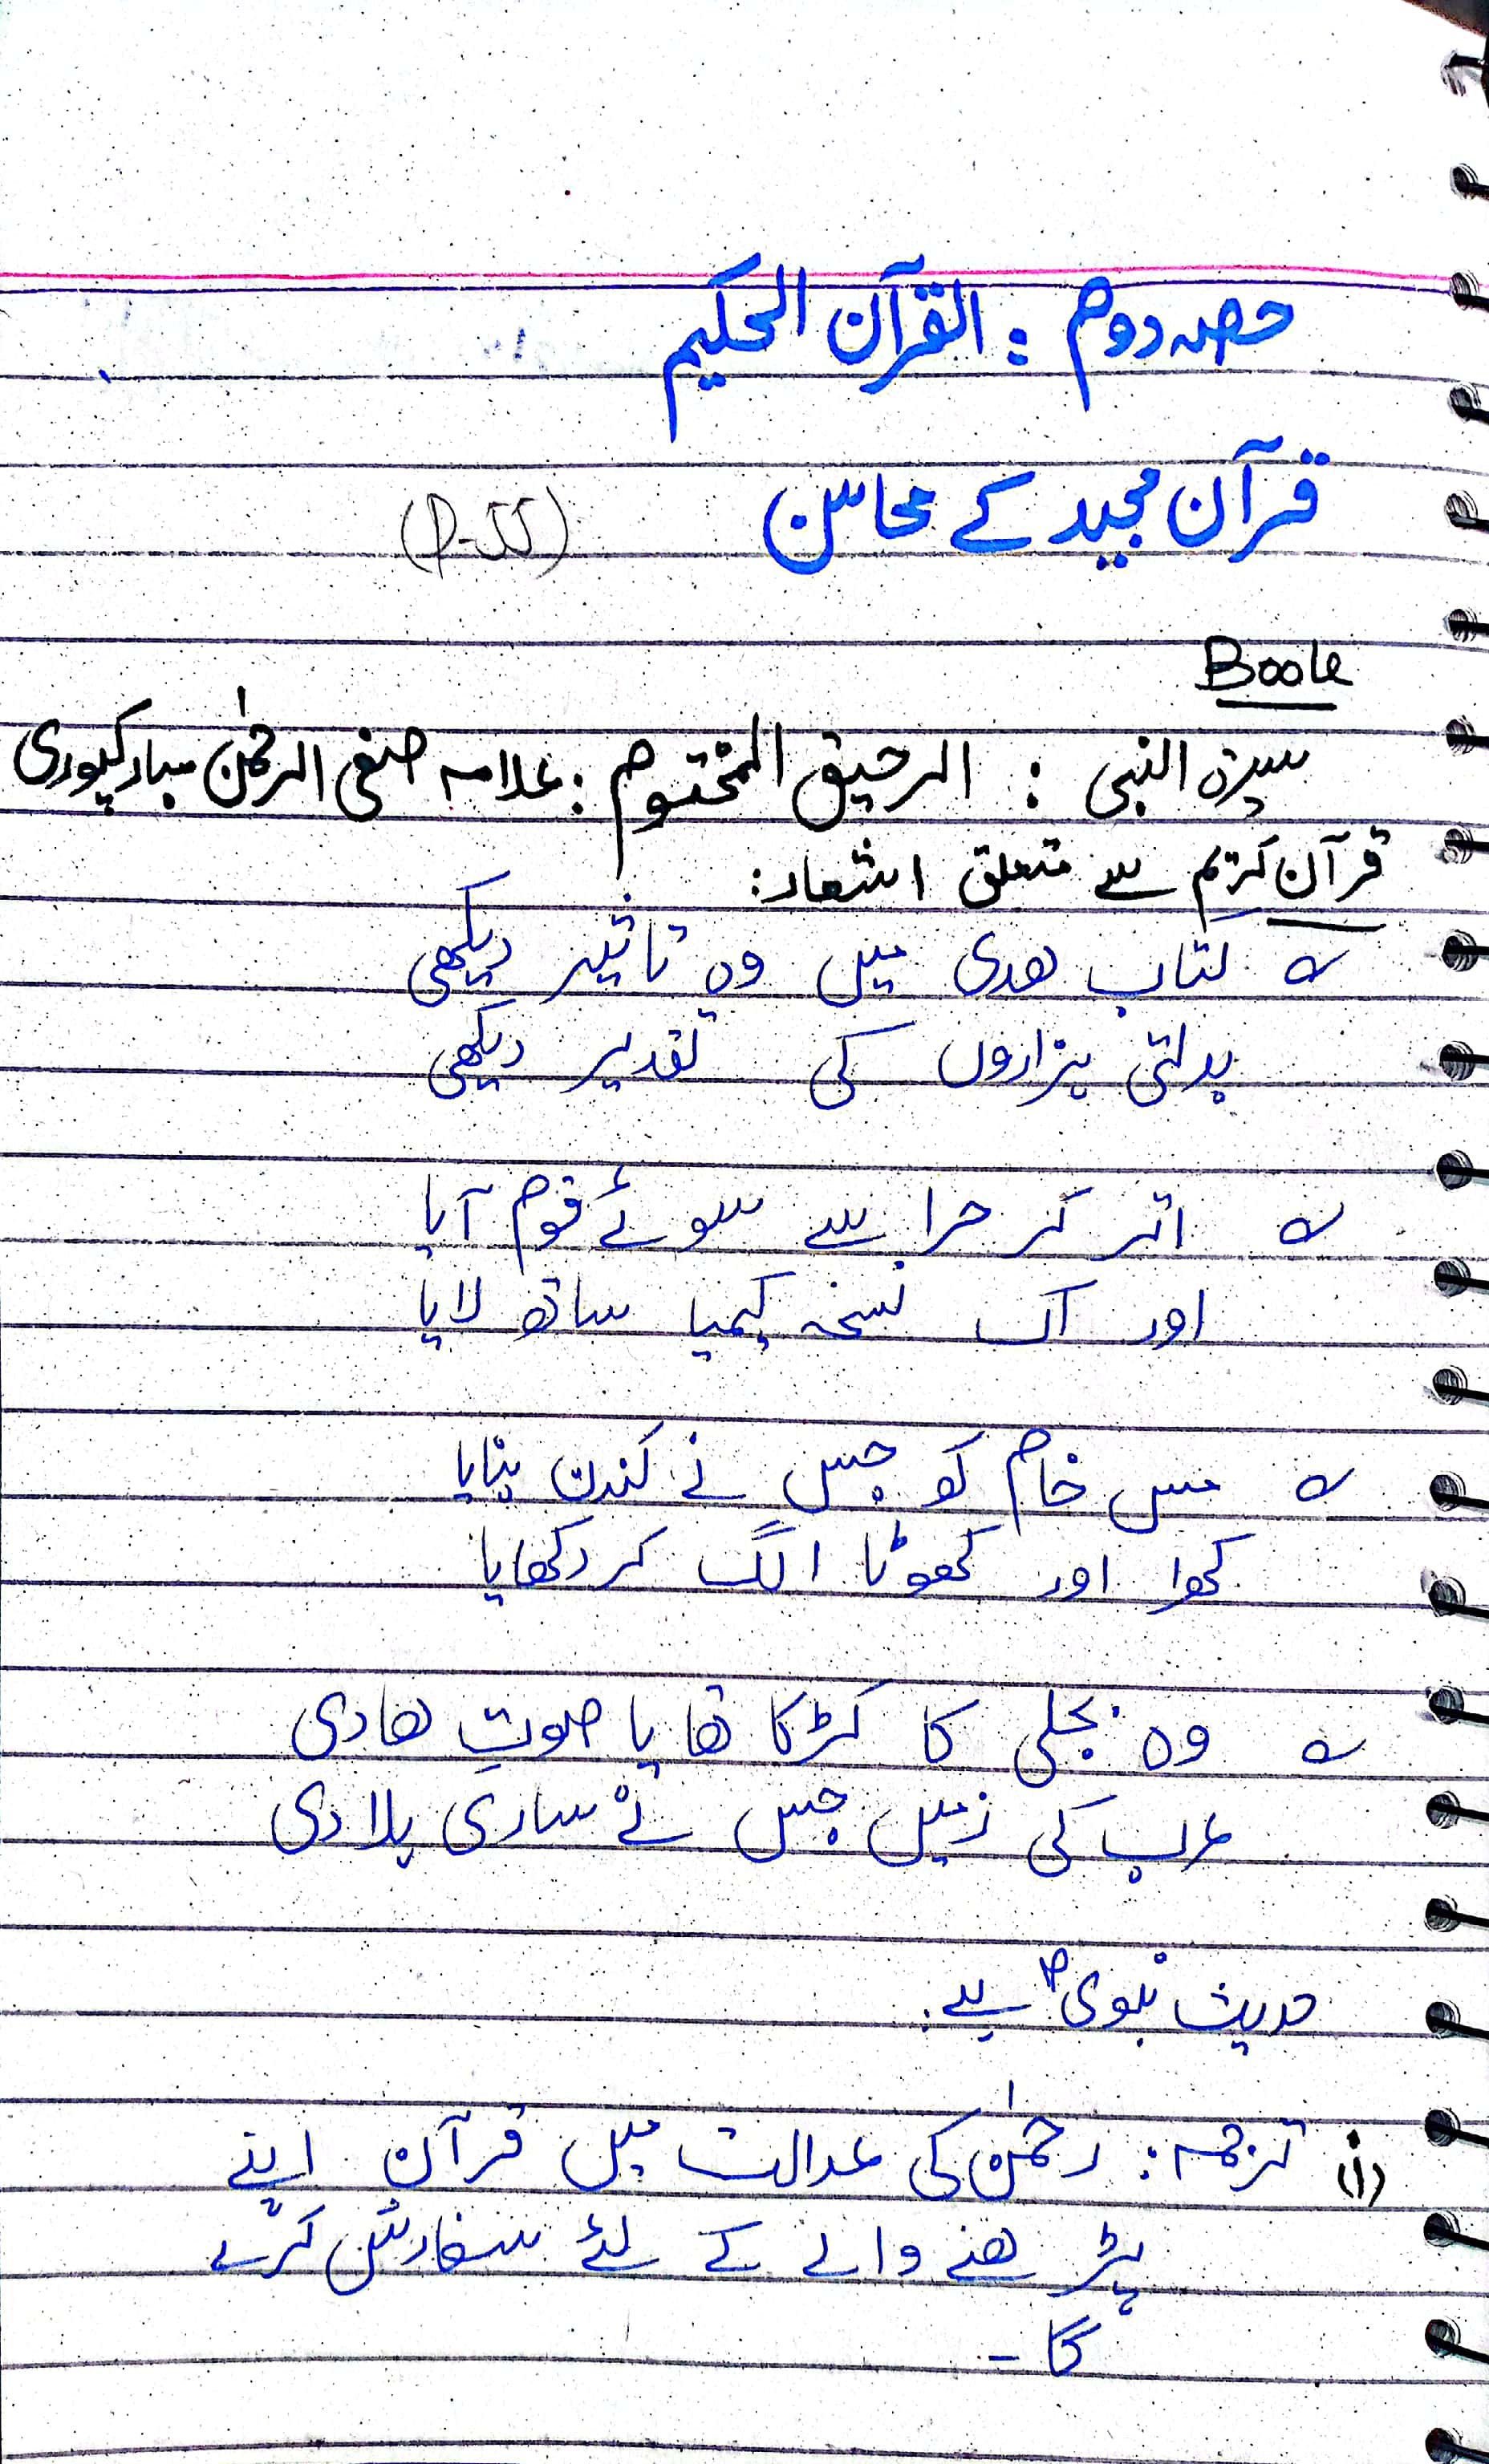 حصہ دوم : القرآن الحکیم
قرآن مجید کے محاسن (P-55)
Book
سیرۃ النبی : الرحیق المختوم : علامہ صفی الرحمٰن مبارکپوری
قرآن کریم سے متعلق اشعار:
؎ کتاب ھدی میں وہ تاثیر دیکھی
بدلتی ہزاروں کی تقدیر دیکھی
؎ اتر کر حرا سے سوئے قوم آیا
اور اک نسخہ کیمیا ساتھ لایا
؎ مس خام کو جس نے کندن بنایا
کھرا اور کھوٹا الگ کر دکھایا
؎ وہ بجلی کا کڑکا تھا یا صوتِ ھادی
عرب کی زمیں جس نے ساری ہلا دی
حدیث نبویؐ ہے:
(i) ترجمہ: رحمٰن کی عدالت میں قرآن اپنے
پڑھنے والے کے لئے سفارش کرے
گا -